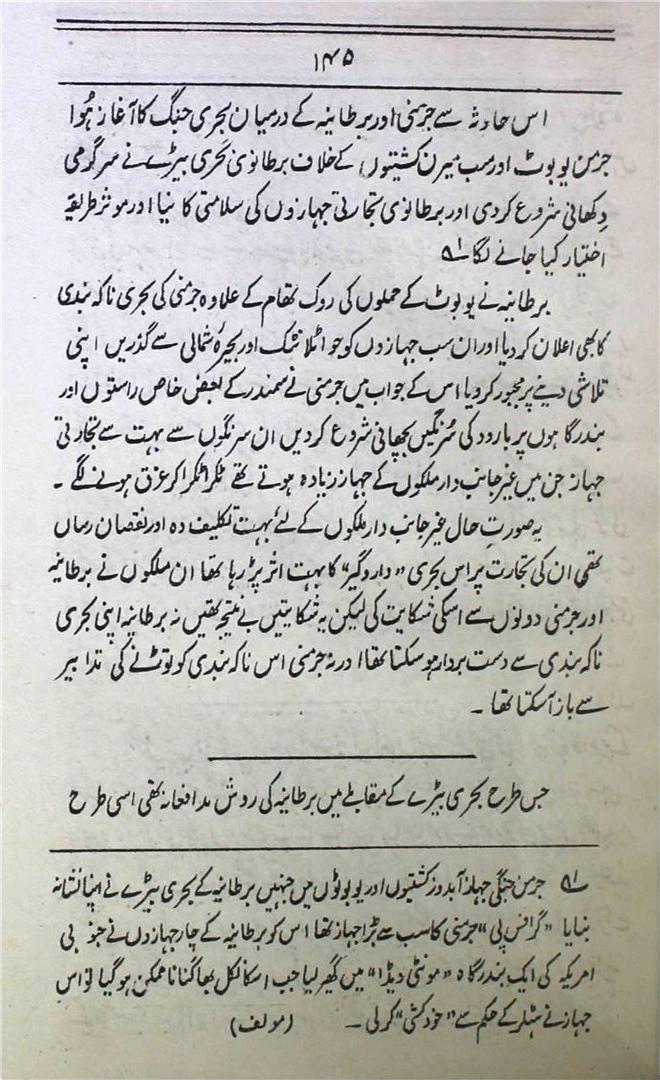 ۱۴۵
اس حادثہ سے جرمنی اور برطانیہ کے درمیان بحری جنگ کا آغاز ہُوا
جرمن یو بوٹ اور سب میرن کشتیوں) کے خلاف برطانوی بحری بیڑے نے سرگرمی
دکھانی شروع کردی اور برطانوی تجارتی جہازوں کی سلامتی کا نیا اور موثر طریقہ
اختیار کیا جانے لگا ؎۱
برطانیہ نے یو بوٹ کے حملوں کی روک تھام کے علاوہ جرمنی کی بحری ناکہ بندی
کا بھی اعلان کردیا اور ان سب جہازوں کو جو اٹلانٹک اور بحیرۂ شمالی سے گذریں اپنی
تلاشی دینے پر مجبور کردیا اس کے جواب میں جرمنی نے سمندر کے بعض خاص راستوں اور
بندرگاہوں پر بارود کی سُرنگیں بچھانی شروع کردیں ان سرنگوں سے بہت سے تجارتی
جہاز جن میں غیر جانب دار ملکوں کے جہاز زیادہ ہوتے تھے ٹکرا ٹکرا کر غرق ہونے لگے ۔
یہ صورتِ حال غیر جانب دار ملکوں کے لئے بہت تکلیف دہ اور نقصان رساں
تھی ان کی تجارت پر اس بحری "داروگیر" کا بہت اثر پڑ رہا تھا ان ملکوں نے برطانیہ
اور جرمنی دونوں سے اسکی شکایت کی لیکن یہ شکایتیں بے نتیجہ تھیں نہ برطانیہ اپنی بحری
ناکہ بندی سے دست بردار ہوسکتا تھا اور نہ جرمنی اس ناکہ بندی کو توڑنے کی تدابیر
سے باز آسکتا تھا ۔
جس طرح بحری بیڑے کے مقابلے میں برطانیہ کی روش مدافعانہ تھی اسی طرح
؎۱ جرمن جنگی جہاز آبدوز کشتیوں اور یو بوٹوں میں جنہیں برطانیہ کے بحری بیڑے نے اپنا نشانہ
بنایا "گراف سپی" جرمنی کا سب سے بڑا جہاز تھا اس کو برطانیہ کے چار جہازوں نے جنوبی
امریکہ کی ایک بندرگاہ "مونٹی ویڈا" میں گھیر لیا جب اسکا نکل بھاگنا ناممکن ہوگیا تو اس
جہاز نے ہٹلر کے حکم سے "خودکشی" کرلی ۔ (مولف)